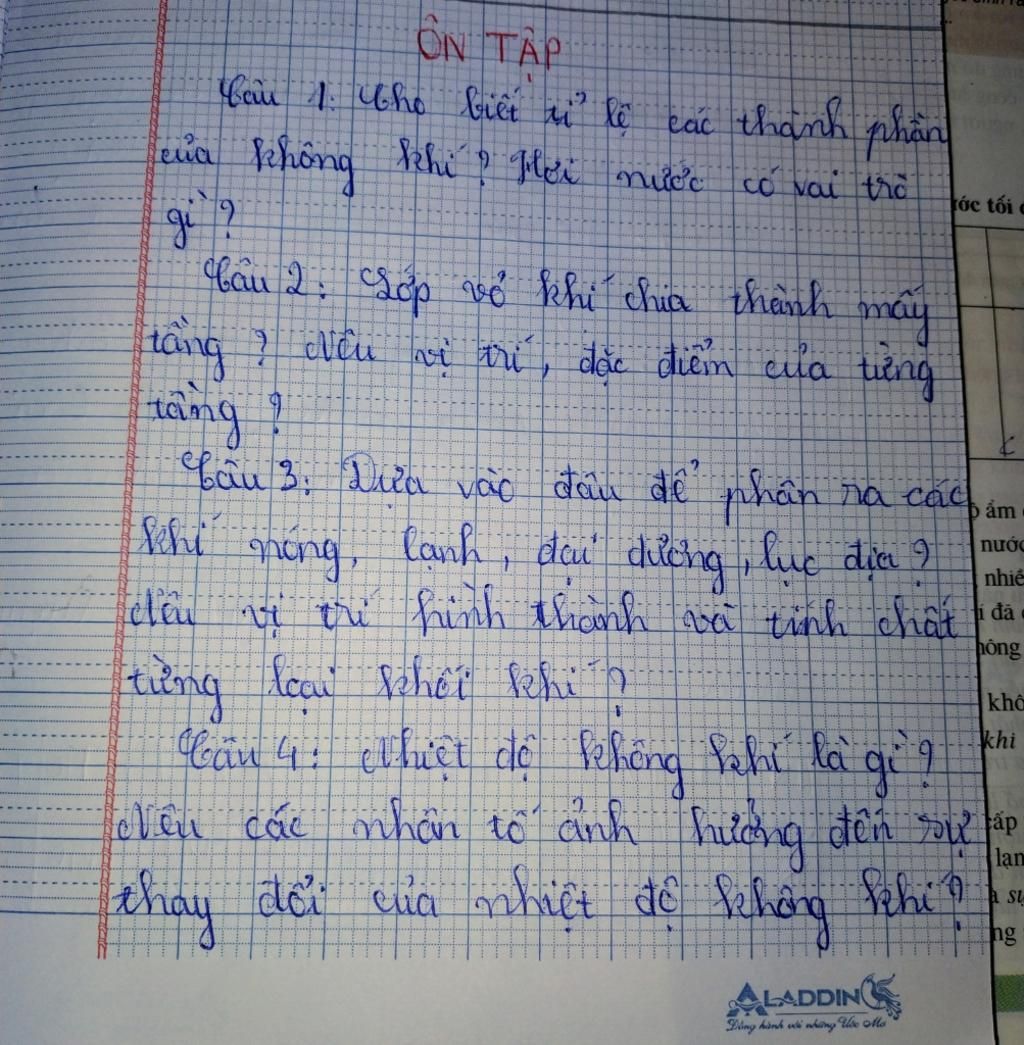 ÔN TẬP
Câu 1: Cho biết tỉ lệ các thành phần
của không khí? Hơi nước có vai trò
gì?
Câu 2: Lớp vỏ khí chia thành mấy
tầng? Nêu vị trí, đặc điểm của từng
tầng?
Câu 3: Dựa vào đâu để phân ra các
khí nóng, lạnh, đại dương, lục địa?
Nêu vị trí hình thành và tính chất
từng loại khối khí?
Câu 4: Nhiệt độ không khí là gì?
Nêu các nhân tố ảnh hưởng đến sự
thay đổi của nhiệt độ không khí?
ALADDIN
Đồng hành với những Ước Mơ
ớc tối
ẩm
nước
nhiề
đá
hông
khô
khi
ấp
lan
sự
ng